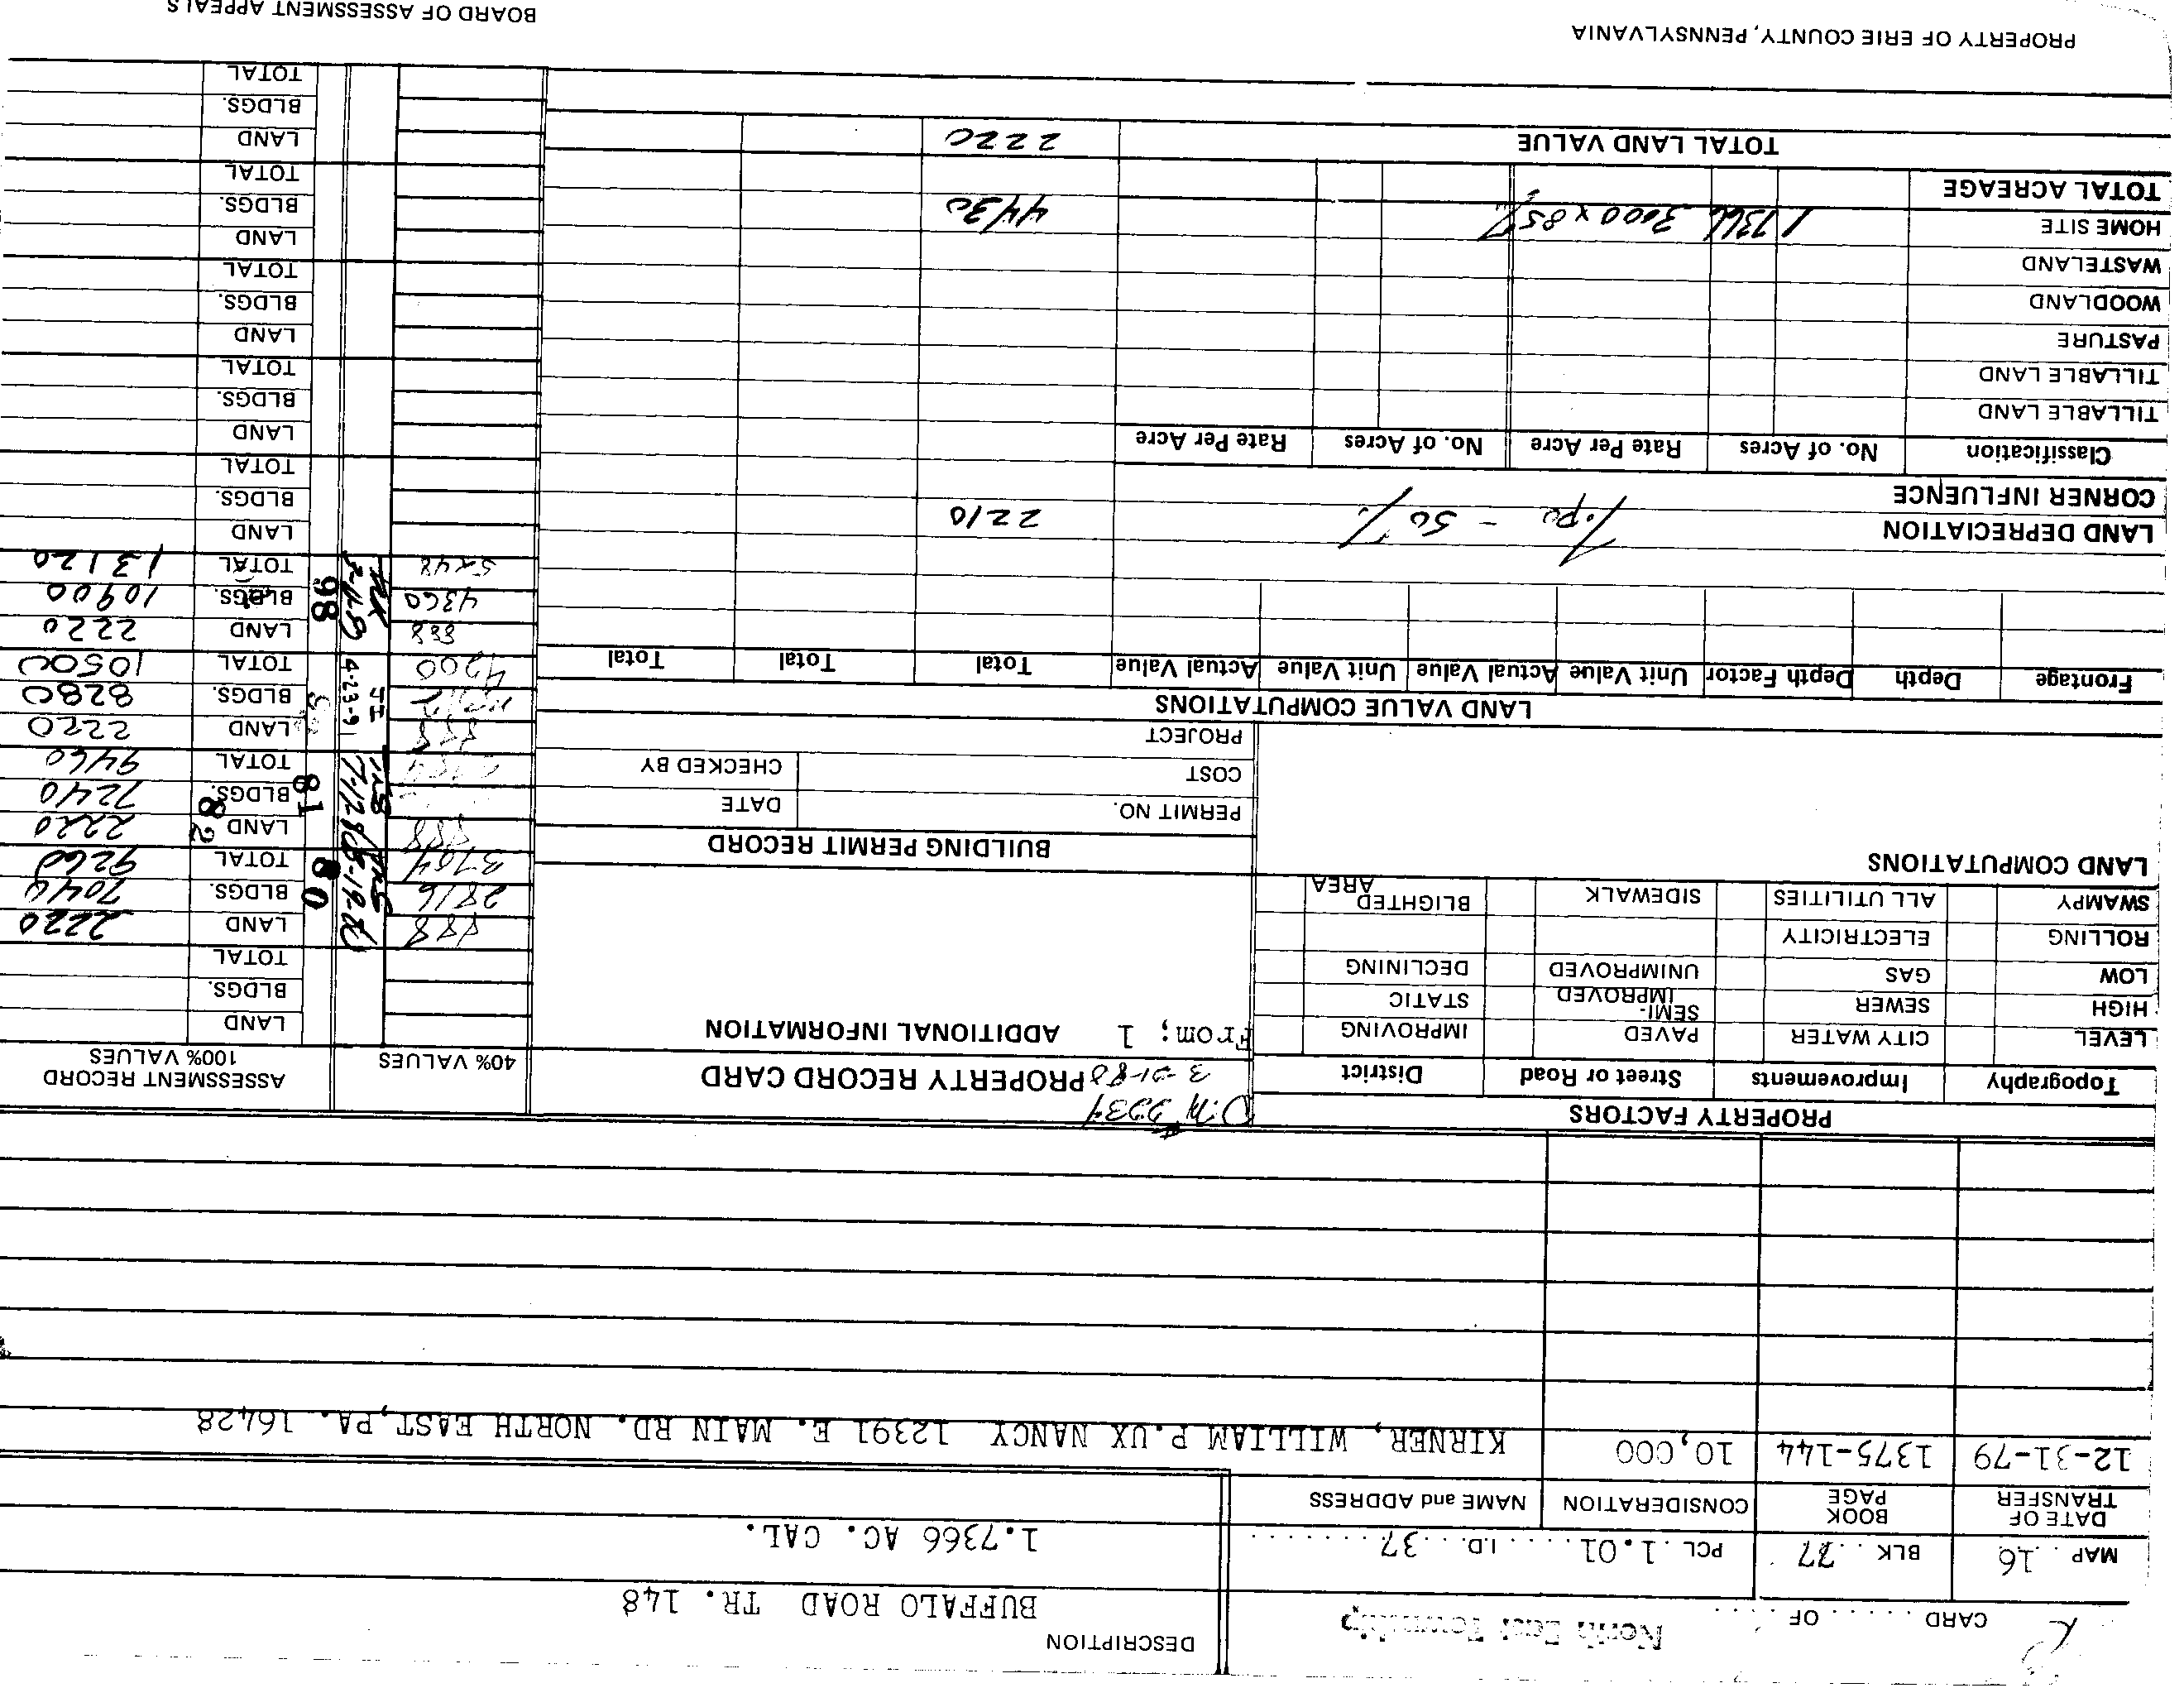 CARD ...... OF ....
North East Township
DESCRIPTION
BUFFALO ROAD TR. 148
MAP ..16 BLK ..77. PCL .1.01..... I.D. ..37.......
1.7366 AC. CAL.
DATE OF TRANSFER BOOK PAGE CONSIDERATION NAME and ADDRESS
12-31-79 1375-144 10,000 KIRNER, WILLIAM P.UX NANCY 12391 E. MAIN RD. NORTH EAST,PA. 16428
PROPERTY FACTORS
Topography Improvements Street or Road District
LEVEL CITY WATER PAVED IMPROVING
HIGH SEWER SEMI-IMPROVED STATIC
LOW GAS UNIMPROVED DECLINING
ROLLING ELECTRICITY
SWAMPY ALL UTILITIES SIDEWALK BLIGHTED AREA
LAND COMPUTATIONS
3-21-80 PROPERTY RECORD CARD
From; 1 ADDITIONAL INFORMATION
BUILDING PERMIT RECORD
PERMIT NO. DATE
COST CHECKED BY
PROJECT
40% VALUES ASSESSMENT RECORD 100% VALUES
LAND
BLDGS.
TOTAL
888 80 LAND 2220
2816 BLDGS. 7040
3704 8-19-80 TOTAL 9260
888 81 82 LAND 2220
BLDGS. 7240
TOTAL 9460
888 4-23-91 LAND 2220
BLDGS. 8280
4200 TOTAL 10500
888 98 LAND 2220
4360 BLDGS. 10900
5248 TOTAL 13120
LAND
BLDGS.
TOTAL
LAND
BLDGS.
TOTAL
LAND
BLDGS.
TOTAL
LAND
BLDGS.
TOTAL
LAND
BLDGS.
TOTAL
LAND VALUE COMPUTATIONS
Frontage Depth Depth Factor Unit Value Actual Value Unit Value Actual Value Total Total Total
LAND DEPRECIATION Topo - 50% 2210
CORNER INFLUENCE
Classification No. of Acres Rate Per Acre No. of Acres Rate Per Acre
TILLABLE LAND
TILLABLE LAND
PASTURE
WOODLAND
WASTELAND
HOME SITE 1.7366 3000 x 85% 4430
TOTAL ACREAGE
TOTAL LAND VALUE 2220
PROPERTY OF ERIE COUNTY, PENNSYLVANIA
BOARD OF ASSESSMENT APPEALS